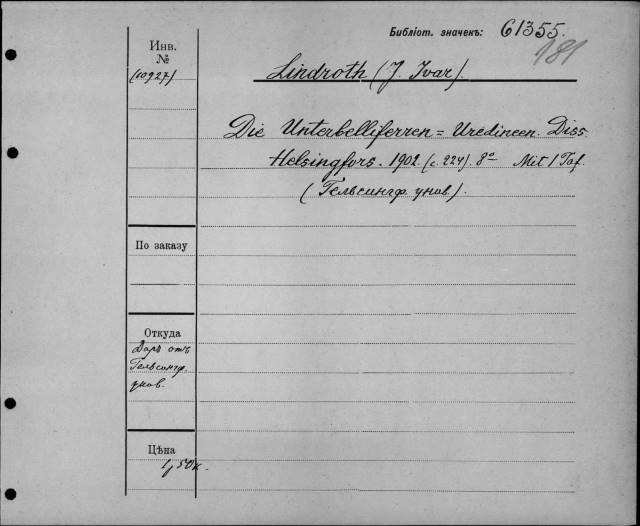 Библіот. значекъ: 61355.
181
Инв.
№
(10927)
Lindroth (J. Ivar).
Die Unterbelliferren = Uredineen. Diss.
Helsingfors. 1902 (с. 224). 8° Mit 1 Taf.
(Гельсингф. унив.).
По заказу
Откуда
Даръ отъ
Гельсингф.
унив.
Цѣна
1 р 50 к.